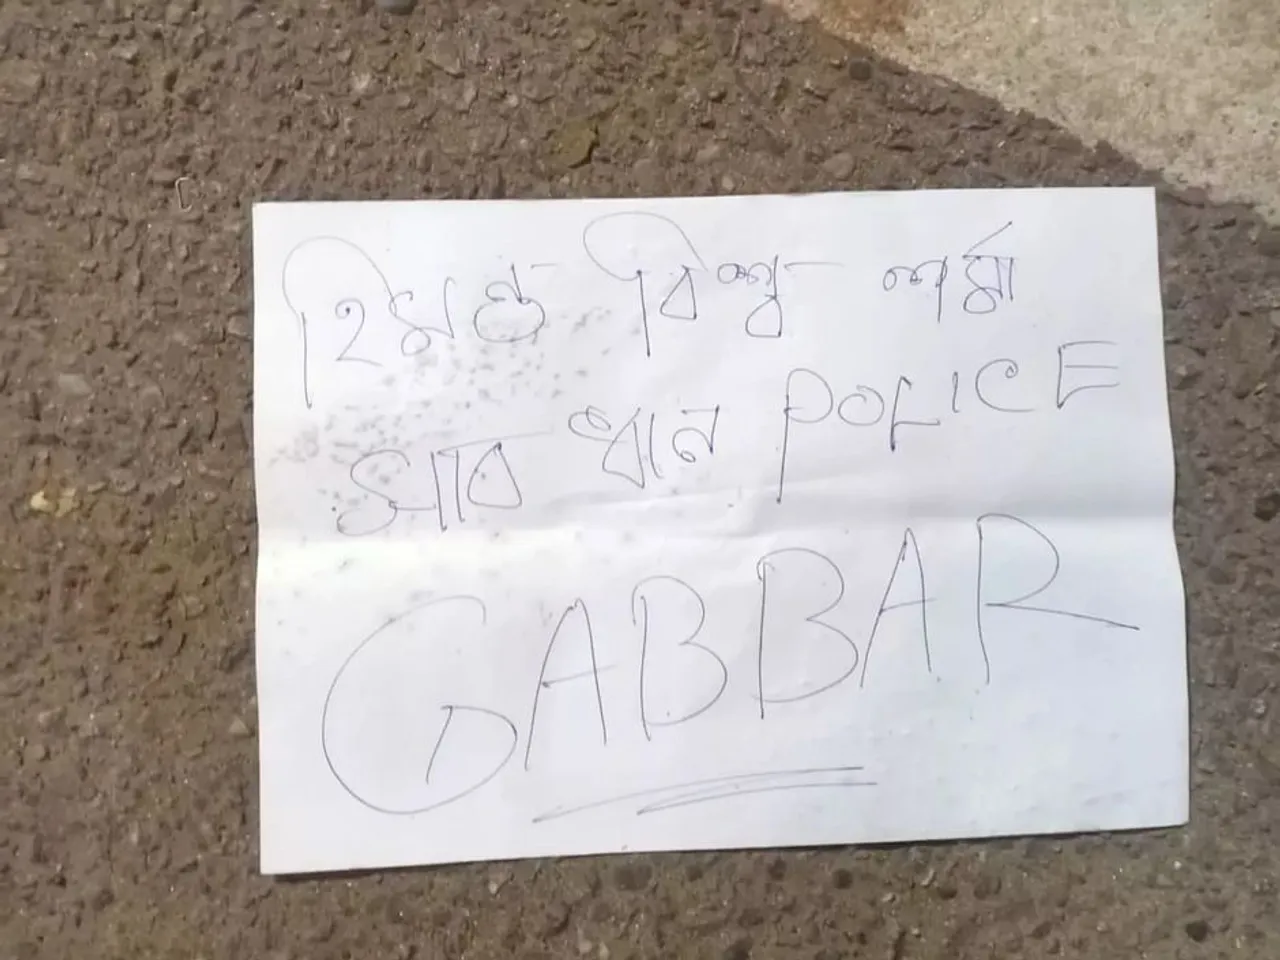 হিমন্ত বিশ্ব শৰ্মা
সাব ধান POLICE
GABBAR